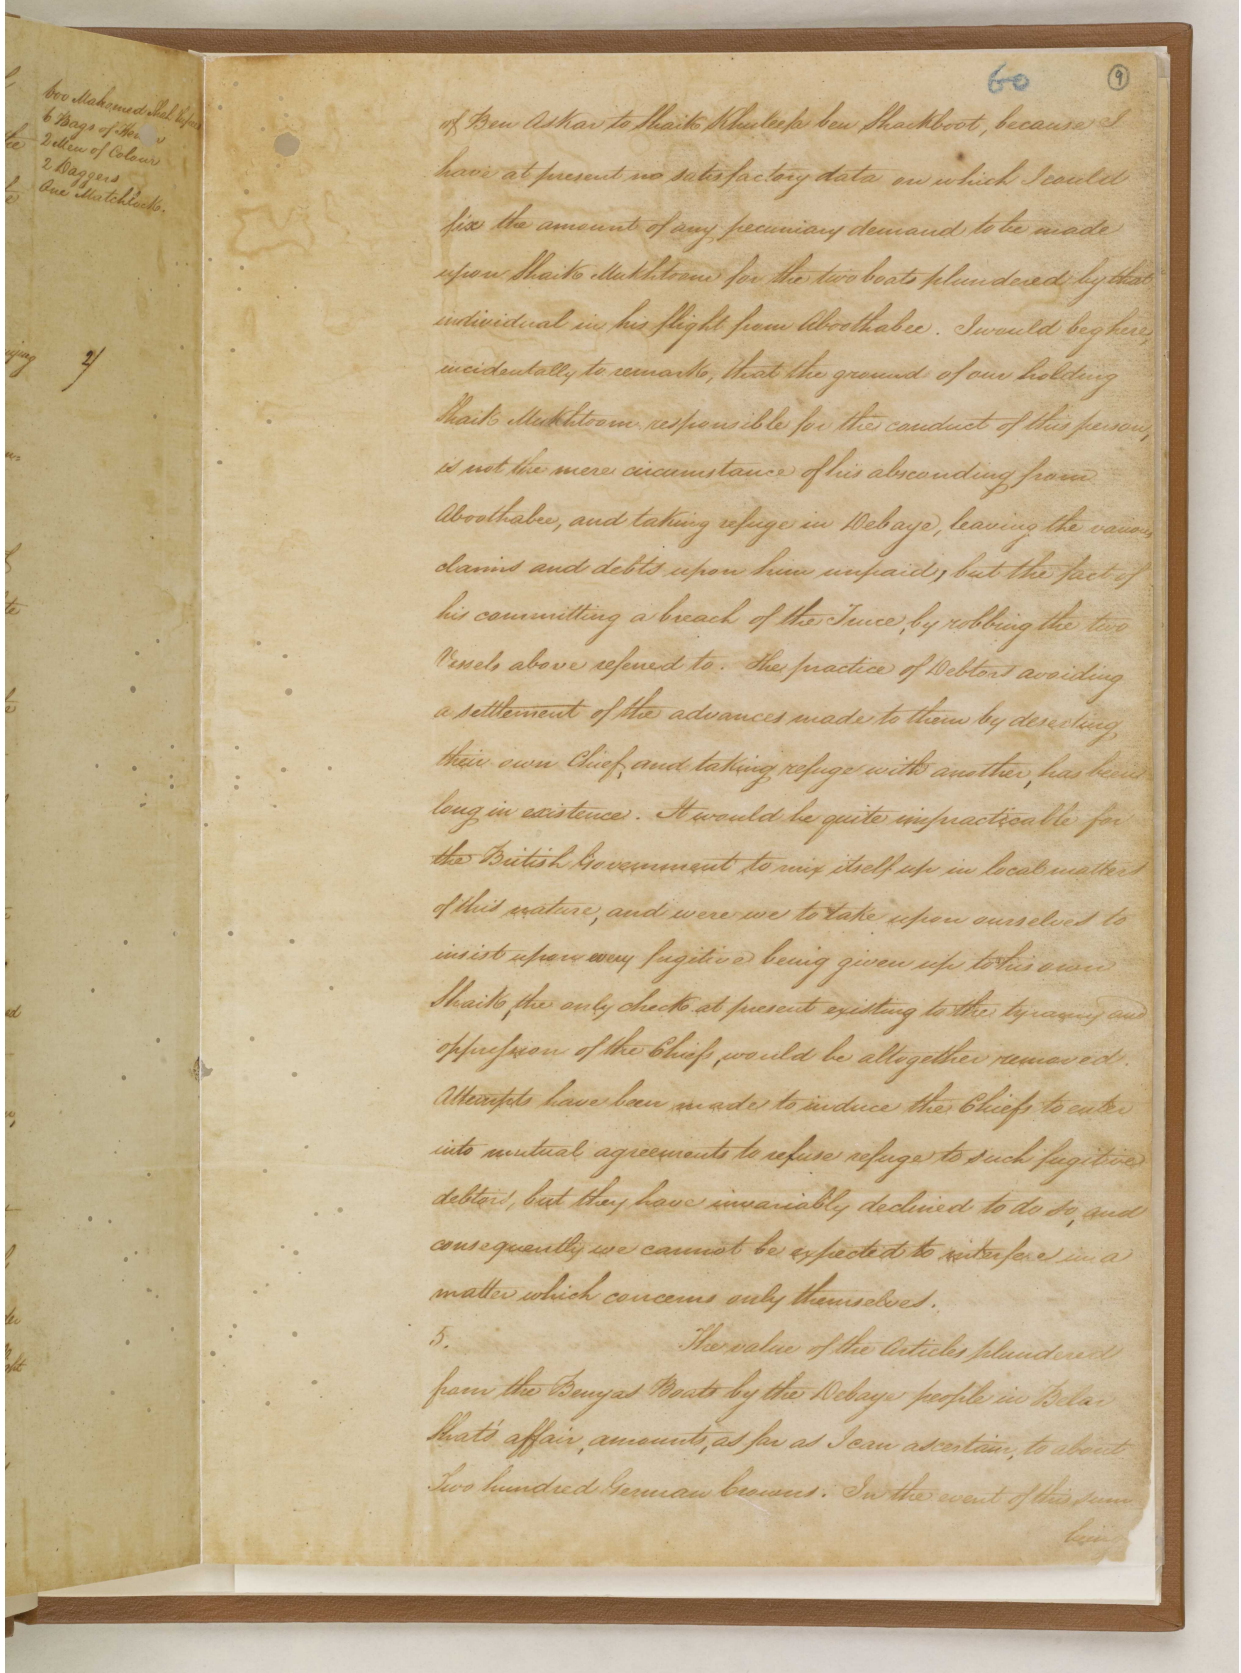 600 Mahomed Shai Rupees
6 Bags of
2 Men of Colour
2 Daggers
One Matchlock.
2/
60
9
of Ben Askar to Shaik Khuleefa ben Shackboot, because I
have at present no satisfactory data on which I could
fix the amount of any pecuniary demand to be made
upon Shaik Mukhtoom for the two boats plundered by that
individual in his flight from Aboothabee. I would beg here,
incidentally to remark, that the ground of our holding
Shaik Mukhtoom responsible for the conduct of this person,
is not the mere circumstance of his absconding from
Aboothabee, and taking refuge in Debaye, leaving the various
claims and debts upon him unpaid, but the fact of
his committing a breach of the Truce, by robbing the two
Vessels above referred to. The practice of Debtors avoiding
a settlement of the advances made to them by deserting
their own Chief, and taking refuge with another, has been
long in existence. It would be quite impracticable for
the British Government to mix itself up in local matters
of this nature, and were we to take upon ourselves to
insist upon every fugitive being given up to his own
Shaik, the only check at present existing to the tyranny and
oppression of the Chiefs, would be altogether removed.
Attempts have been made to induce the Chiefs to enter
into mutual agreements to refuse refuge to such fugitive
debtors, but they have invariably declined to do so, and
consequently we cannot be expected to interfere in a
matter which concerns only themselves.
5. The value of the Articles plundered
from the Benyas Boats by the Debaye people in Belar
Shat's affair, amounts, as far as I can ascertain, to about
Two hundred German Crowns. In the event of this sum
being